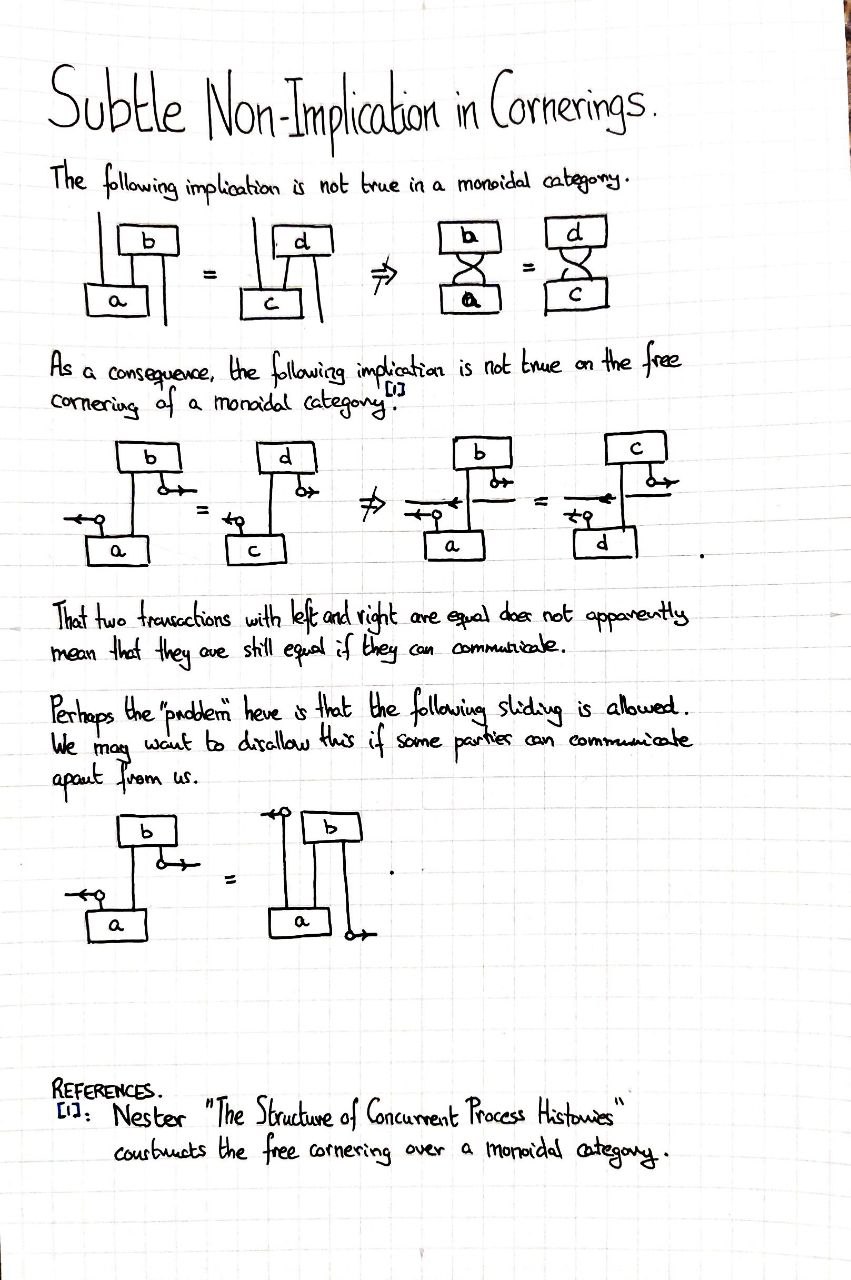 Subtle Non-Implication in Cornerings.
The following implication is not true in a monoidal category.
b d b d
= ⇏ =
a c a c
As a consequence, the following implication is not true on the free
cornering of a monoidal category.[1]
b d b c
= ⇏ =
a c a d .
That two transactions with left and right are equal does not apparently
mean that they are still equal if they can communicate.
Perhaps the "problem" here is that the following sliding is allowed.
We may want to disallow this if some parties can communicate
apart from us.
b b
= .
a a
REFERENCES.
[1]: Nester "The Structure of Concurrent Process Histories"
constructs the free cornering over a monoidal category.